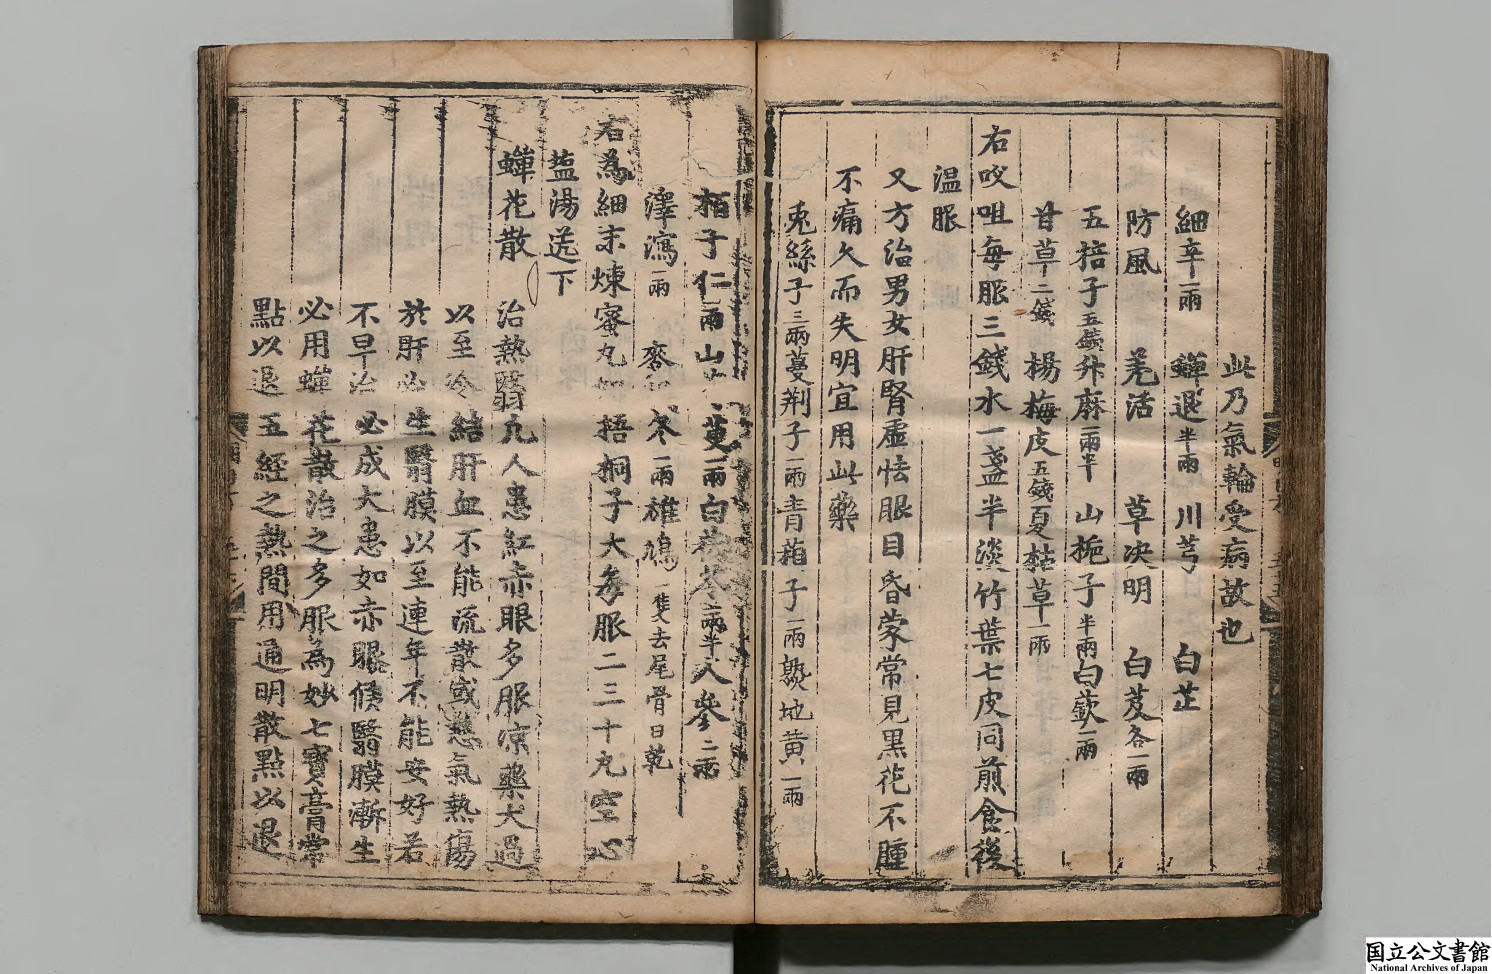 此乃氣輪受病故也
細辛一兩 蟬退半兩 川芎 白芷
防風 羌活 草决明 白芨各一兩
五掊子五錢 升麻一兩半 山梔子半兩 白蘞一兩
甘草二錢 楊梅皮五錢 夏枯草一兩
右㕮咀每服三錢水一盞半淡竹葉七皮同煎食後
温服
又方治男女肝腎虚怯眼目昏蒙常見黒花不腫
不痛久而失明宜用此藥
兎絲子三兩 蔓荆子一兩 青葙子一兩 熟地黄一兩
栢子仁一兩 山 萸一兩 白茯苓一兩半 人參二兩
澤瀉一兩 麥 冬一兩 雄鳩一隻去尾骨日乾
右為細末煉蜜丸如梧桐子大每服二三十丸空心
盐湯送下
蟬花散 治熱翳凡人患紅赤眼多服凉藥大過
以至冷結肝血不能流散或怒氣熱傷
於肝必生翳膜以至連年不能安好若
不早治必成大患如赤眼候翳膜漸生
必用蟬花散治之多服為妙七寳膏常
點以退五經之熱間用通明散點以退
国立公文書館
National Archives of Japan